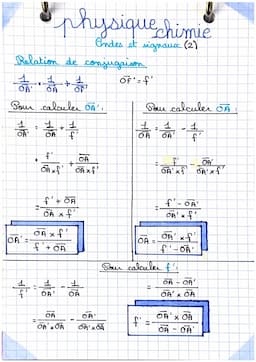 physique chimie
Ondes et signaux (2)
Relation de conjugaison
1/OA' = 1/OA + 1/f'
OF' = f'
Pour calculer OA' :
1/OA' = 1/OA + 1/f'
= f'/(OA × f') + OA/(OA × f')
= (f' + OA)/(OA × f')
OA' = (OA × f')/(f' + OA)
Pour calculer OA :
1/OA = 1/OA' - 1/f'
= f'/(OA' × f') - OA'/(OA' × f')
= (f' - OA')/(OA' × f')
OA = (OA' × f')/(f' - OA')
Pour calculer f' :
1/f' = 1/OA' - 1/OA
= OA/(OA' × OA) - OA'/(OA' × OA)
= (OA - OA')/(OA' × OA)
f' = (OA' × OA)/(OA - OA')